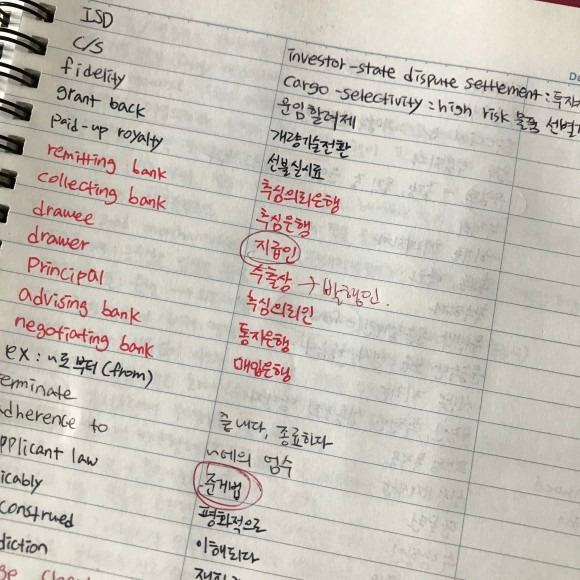 ISD investor-state dispute settlement : 투자
C/S cargo-selectivity : high risk 물품 선별
fidelity 운임할려제
grant back 개량기술전환
paid-up royalty 선불실시료
remitting bank 추심의뢰은행
collecting bank 추심은행
drawee 지급인
drawer 수출상 → 발행인.
Principal 추심의뢰인
advising bank 통지은행
negotiating bank 매입은행
ex : ~로부터(from)
erminate 끝내다, 종료하다
dherence to ~에의 엄수
pplicant law 준거법
icably 평화적으로
construed 이해되다
diction